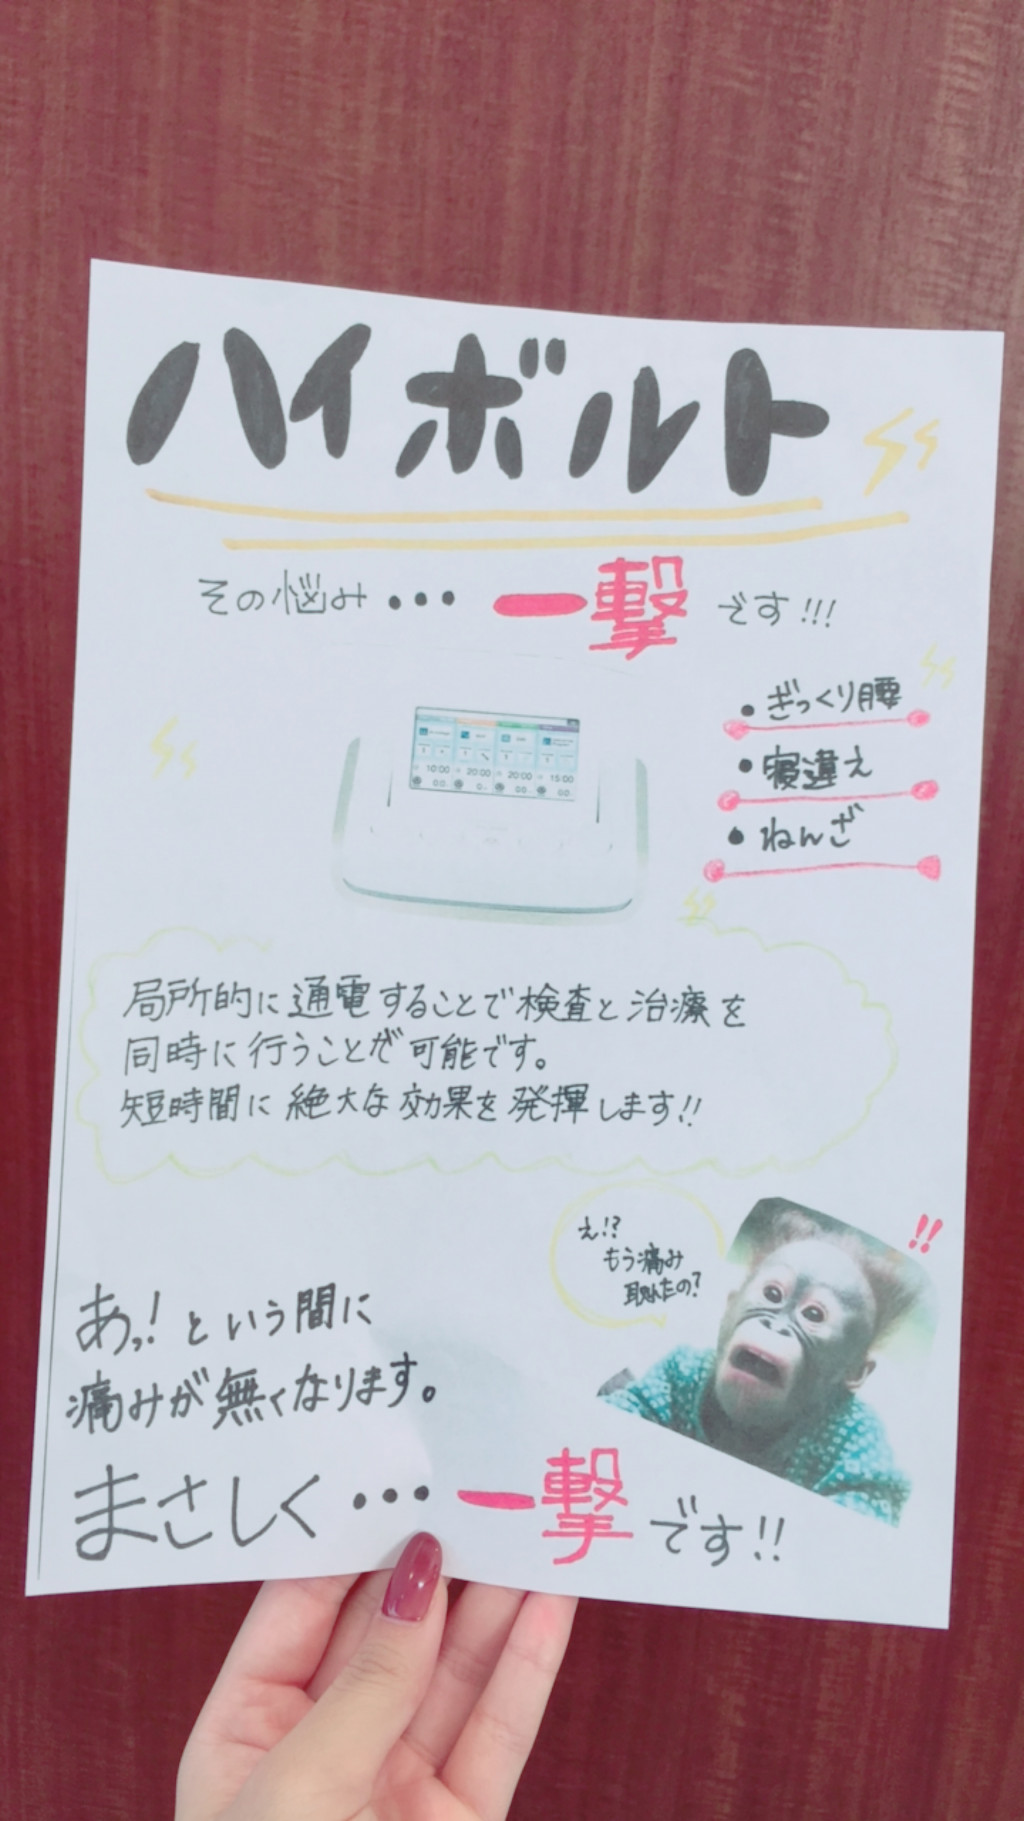 ハイボルト
その悩み・・・一撃です!!!
・ぎっくり腰
・寝違え
・ねんざ
10:00 20:00 20:00 15:00
局所的に通電することで検査と治療を
同時に行うことが可能です。
短時間に絶大な効果を発揮します!!
え!?
もう痛み
取れたの?
!!
あっ!という間に
痛みが無くなります。
まさしく・・・一撃です!!